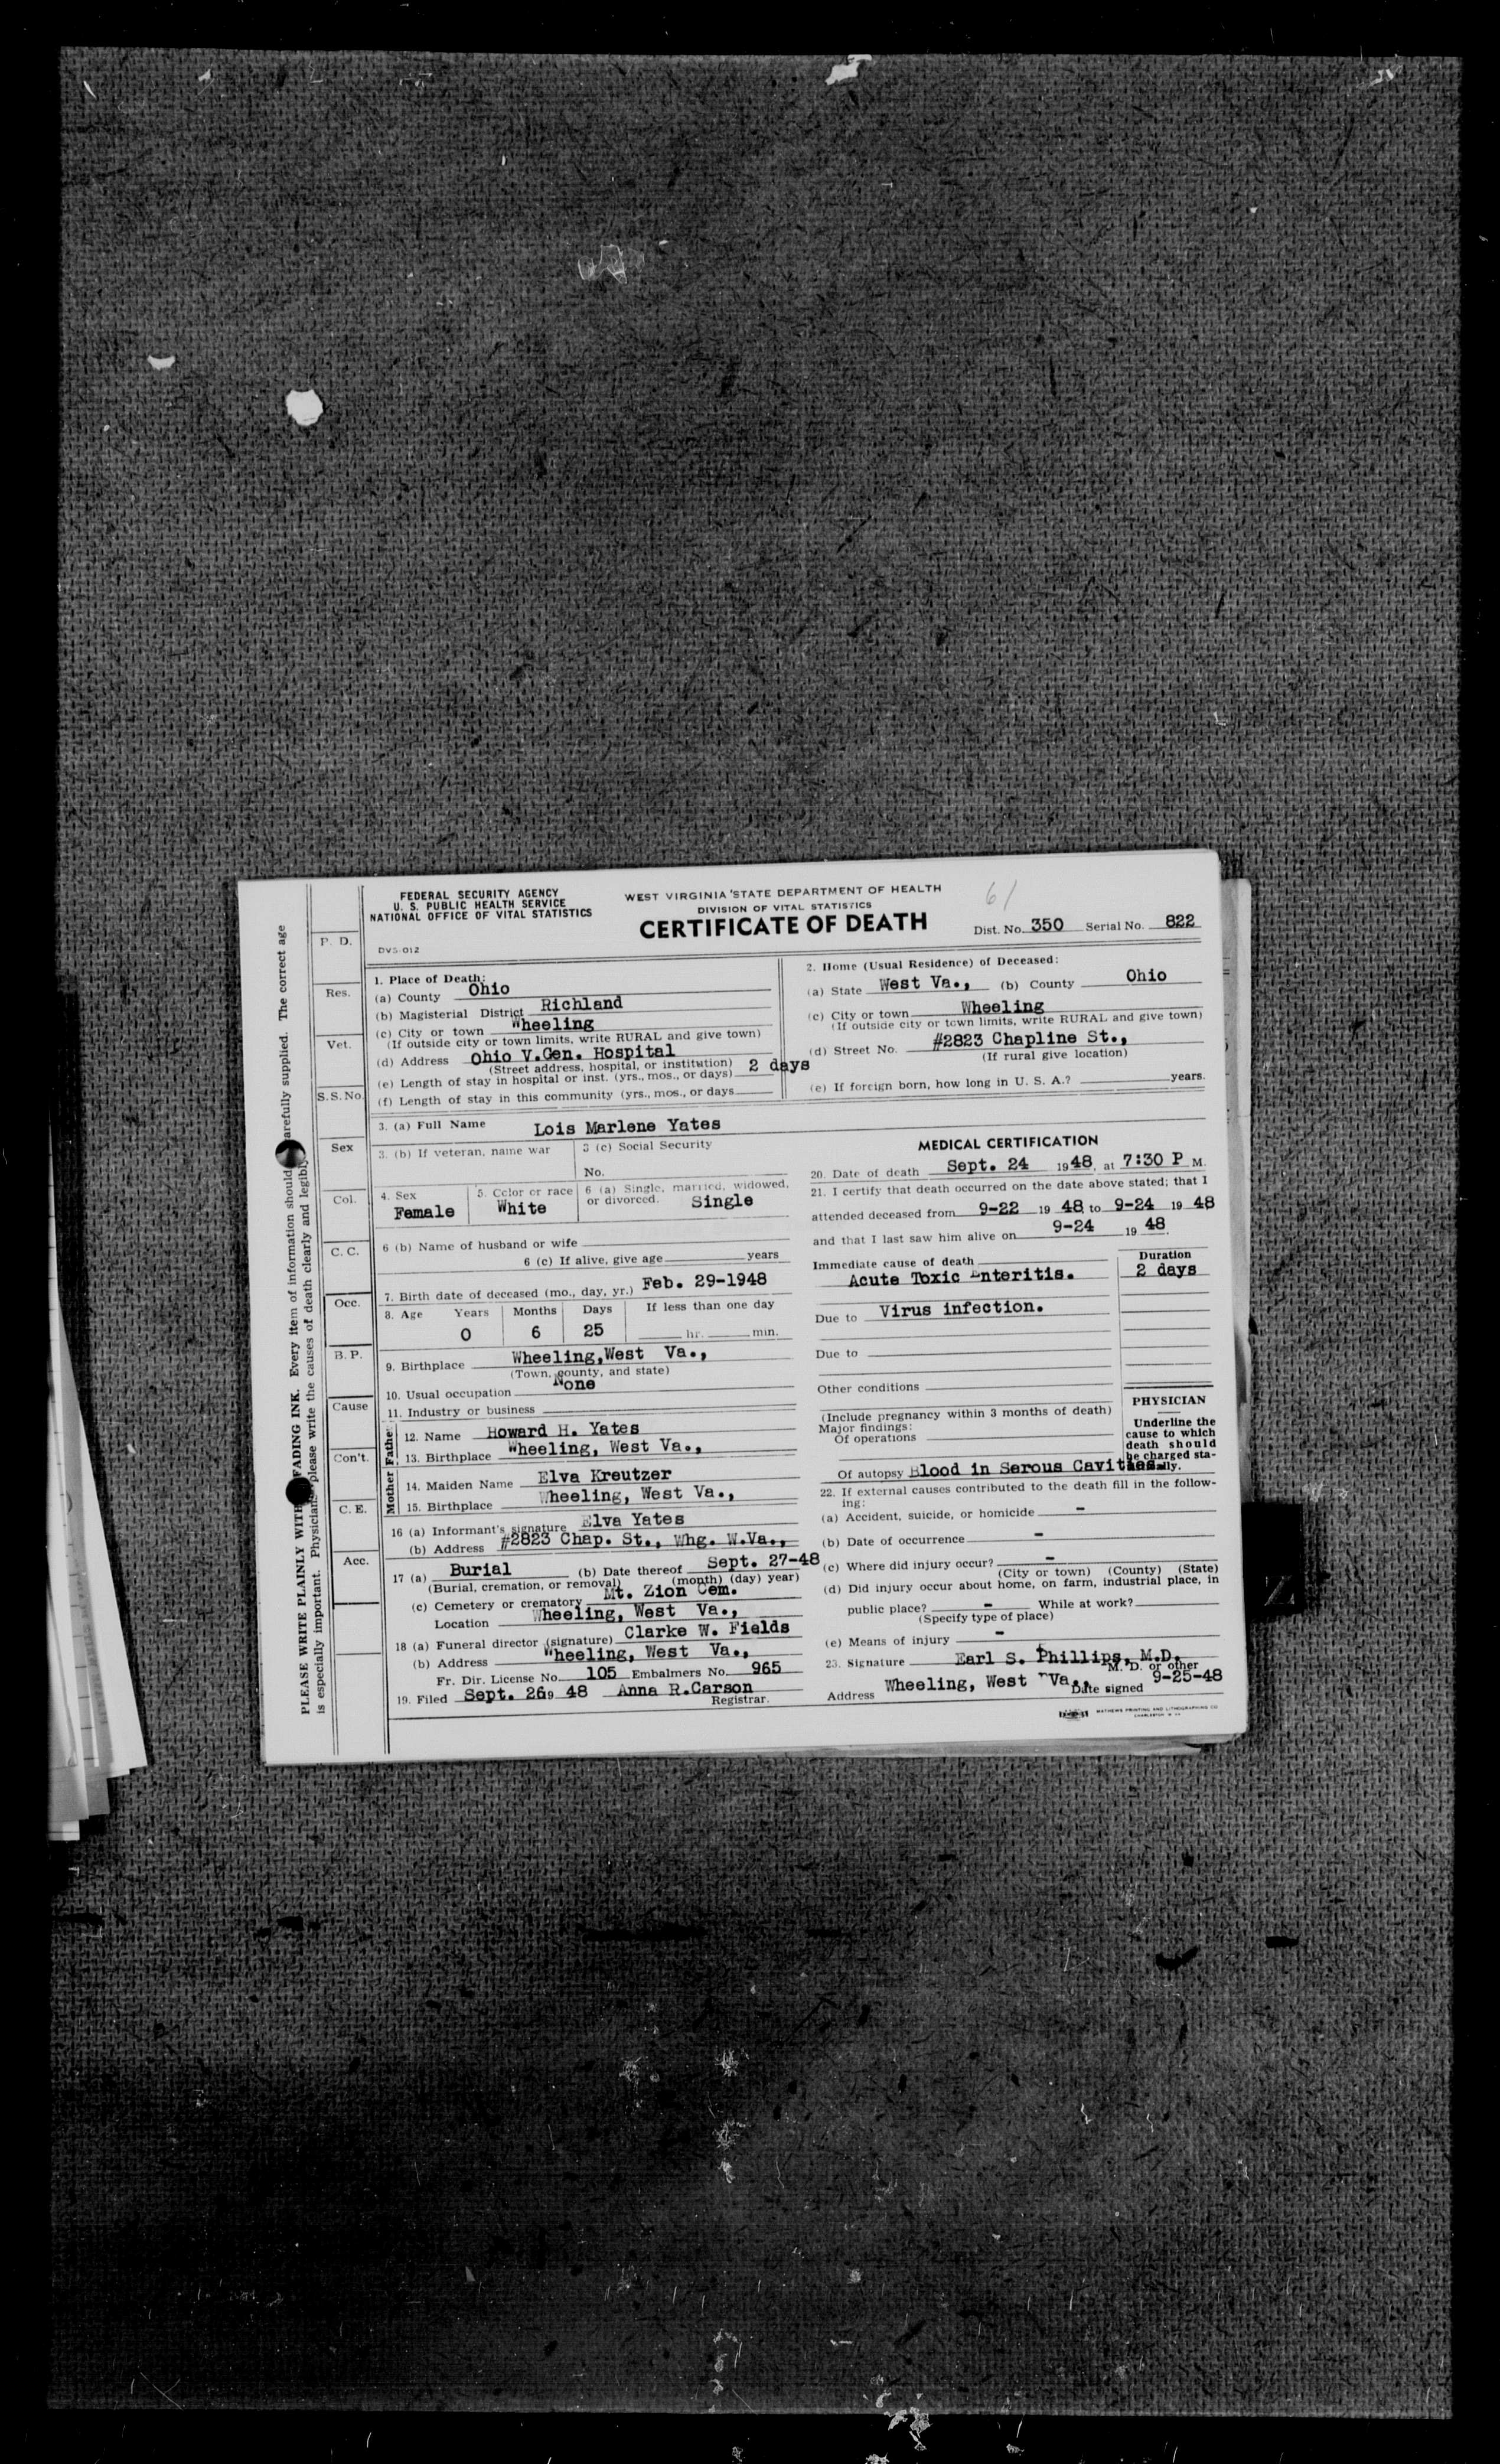 PLEASE WRITE PLAINLY WITH FADING INK. Every item of information should arefully supplied. The correct age
is especially important. Physician please write the causes of death clearly and legibly
P. D.
Res.
Vet.
S.S. No.
Sex
Col.
C. C.
Occ.
B. P.
Cause
Con't.
C. E.
Acc.
FEDERAL SECURITY AGENCY
U. S. PUBLIC HEALTH SERVICE
NATIONAL OFFICE OF VITAL STATISTICS
DVS-012
WEST VIRGINIA STATE DEPARTMENT OF HEALTH
DIVISION OF VITAL STATISTICS
CERTIFICATE OF DEATH
61
Dist. No. 350 Serial No. 822
1. Place of Death:
(a) County Ohio
(b) Magisterial District Richland
(c) City or town Wheeling
(If outside city or town limits, write RURAL and give town)
(d) Address Ohio V.Gen. Hospital
(Street address, hospital, or institution)
(e) Length of stay in hospital or inst. (yrs., mos., or days) 2 days
(f) Length of stay in this community (yrs., mos., or days
2. Home (Usual Residence) of Deceased:
(a) State West Va., (b) County Ohio
(c) City or town Wheeling
(If outside city or town limits, write RURAL and give town)
(d) Street No. #2823 Chapline St.,
(If rural give location)
(e) If foreign born, how long in U. S. A.? years.
3. (a) Full Name Lois Marlene Yates
3. (b) If veteran, name war
3 (c) Social Security
No.
4. Sex
Female
5. Color or race
White
6 (a) Single, married, widowed,
or divorced. Single
6 (b) Name of husband or wife
6 (c) If alive, give age years
7. Birth date of deceased (mo., day, yr.) Feb. 29-1948
8. Age Years Months Days If less than one day
0 6 25 hr. min.
9. Birthplace Wheeling,West Va.,
(Town, county, and state)
10. Usual occupation None
11. Industry or business
Father
12. Name Howard H. Yates
13. Birthplace Wheeling, West Va.,
Mother
14. Maiden Name Elva Kreutzer
15. Birthplace Wheeling, West Va.,
16 (a) Informant's signature Elva Yates
(b) Address #2823 Chap. St., Whg. W.Va.,
17 (a) Burial (b) Date thereof Sept. 27-48
(Burial, cremation, or removal) (month) (day) year)
(c) Cemetery or crematory Mt. Zion Cem.
Location Wheeling, West Va.,
18 (a) Funeral director (signature) Clarke W. Fields
(b) Address Wheeling, West Va.,
Fr. Dir. License No. 105 Embalmers No. 965
19. Filed Sept. 26, 48 Anna R.Carson
Registrar.
MEDICAL CERTIFICATION
20. Date of death Sept. 24 1948, at 7:30 P M.
21. I certify that death occurred on the date above stated; that I
attended deceased from 9-22 19 48 to 9-24 19 48
and that I last saw him alive on 9-24 19 48.
Immediate cause of death Duration
Acute Toxic Enteritis. 2 days
Due to Virus infection.
Due to
Other conditions
(Include pregnancy within 3 months of death)
Major findings:
Of operations
PHYSICIAN
Underline the
cause to which
death should
be charged sta-
Of autopsy Blood in Serous Cavities.
22. If external causes contributed to the death fill in the follow-
ing:
(a) Accident, suicide, or homicide -
(b) Date of occurrence -
(c) Where did injury occur? -
(City or town) (County) (State)
(d) Did injury occur about home, on farm, industrial place, in
public place? - While at work?
(Specify type of place)
(e) Means of injury -
23. Signature Earl S. Phillips, M.D.
M. D. or other
Address Wheeling, West Va., Date signed 9-25-48
MATHEWS PRINTING AND LITHOGRAPHING CO
CHARLESTON, W VA